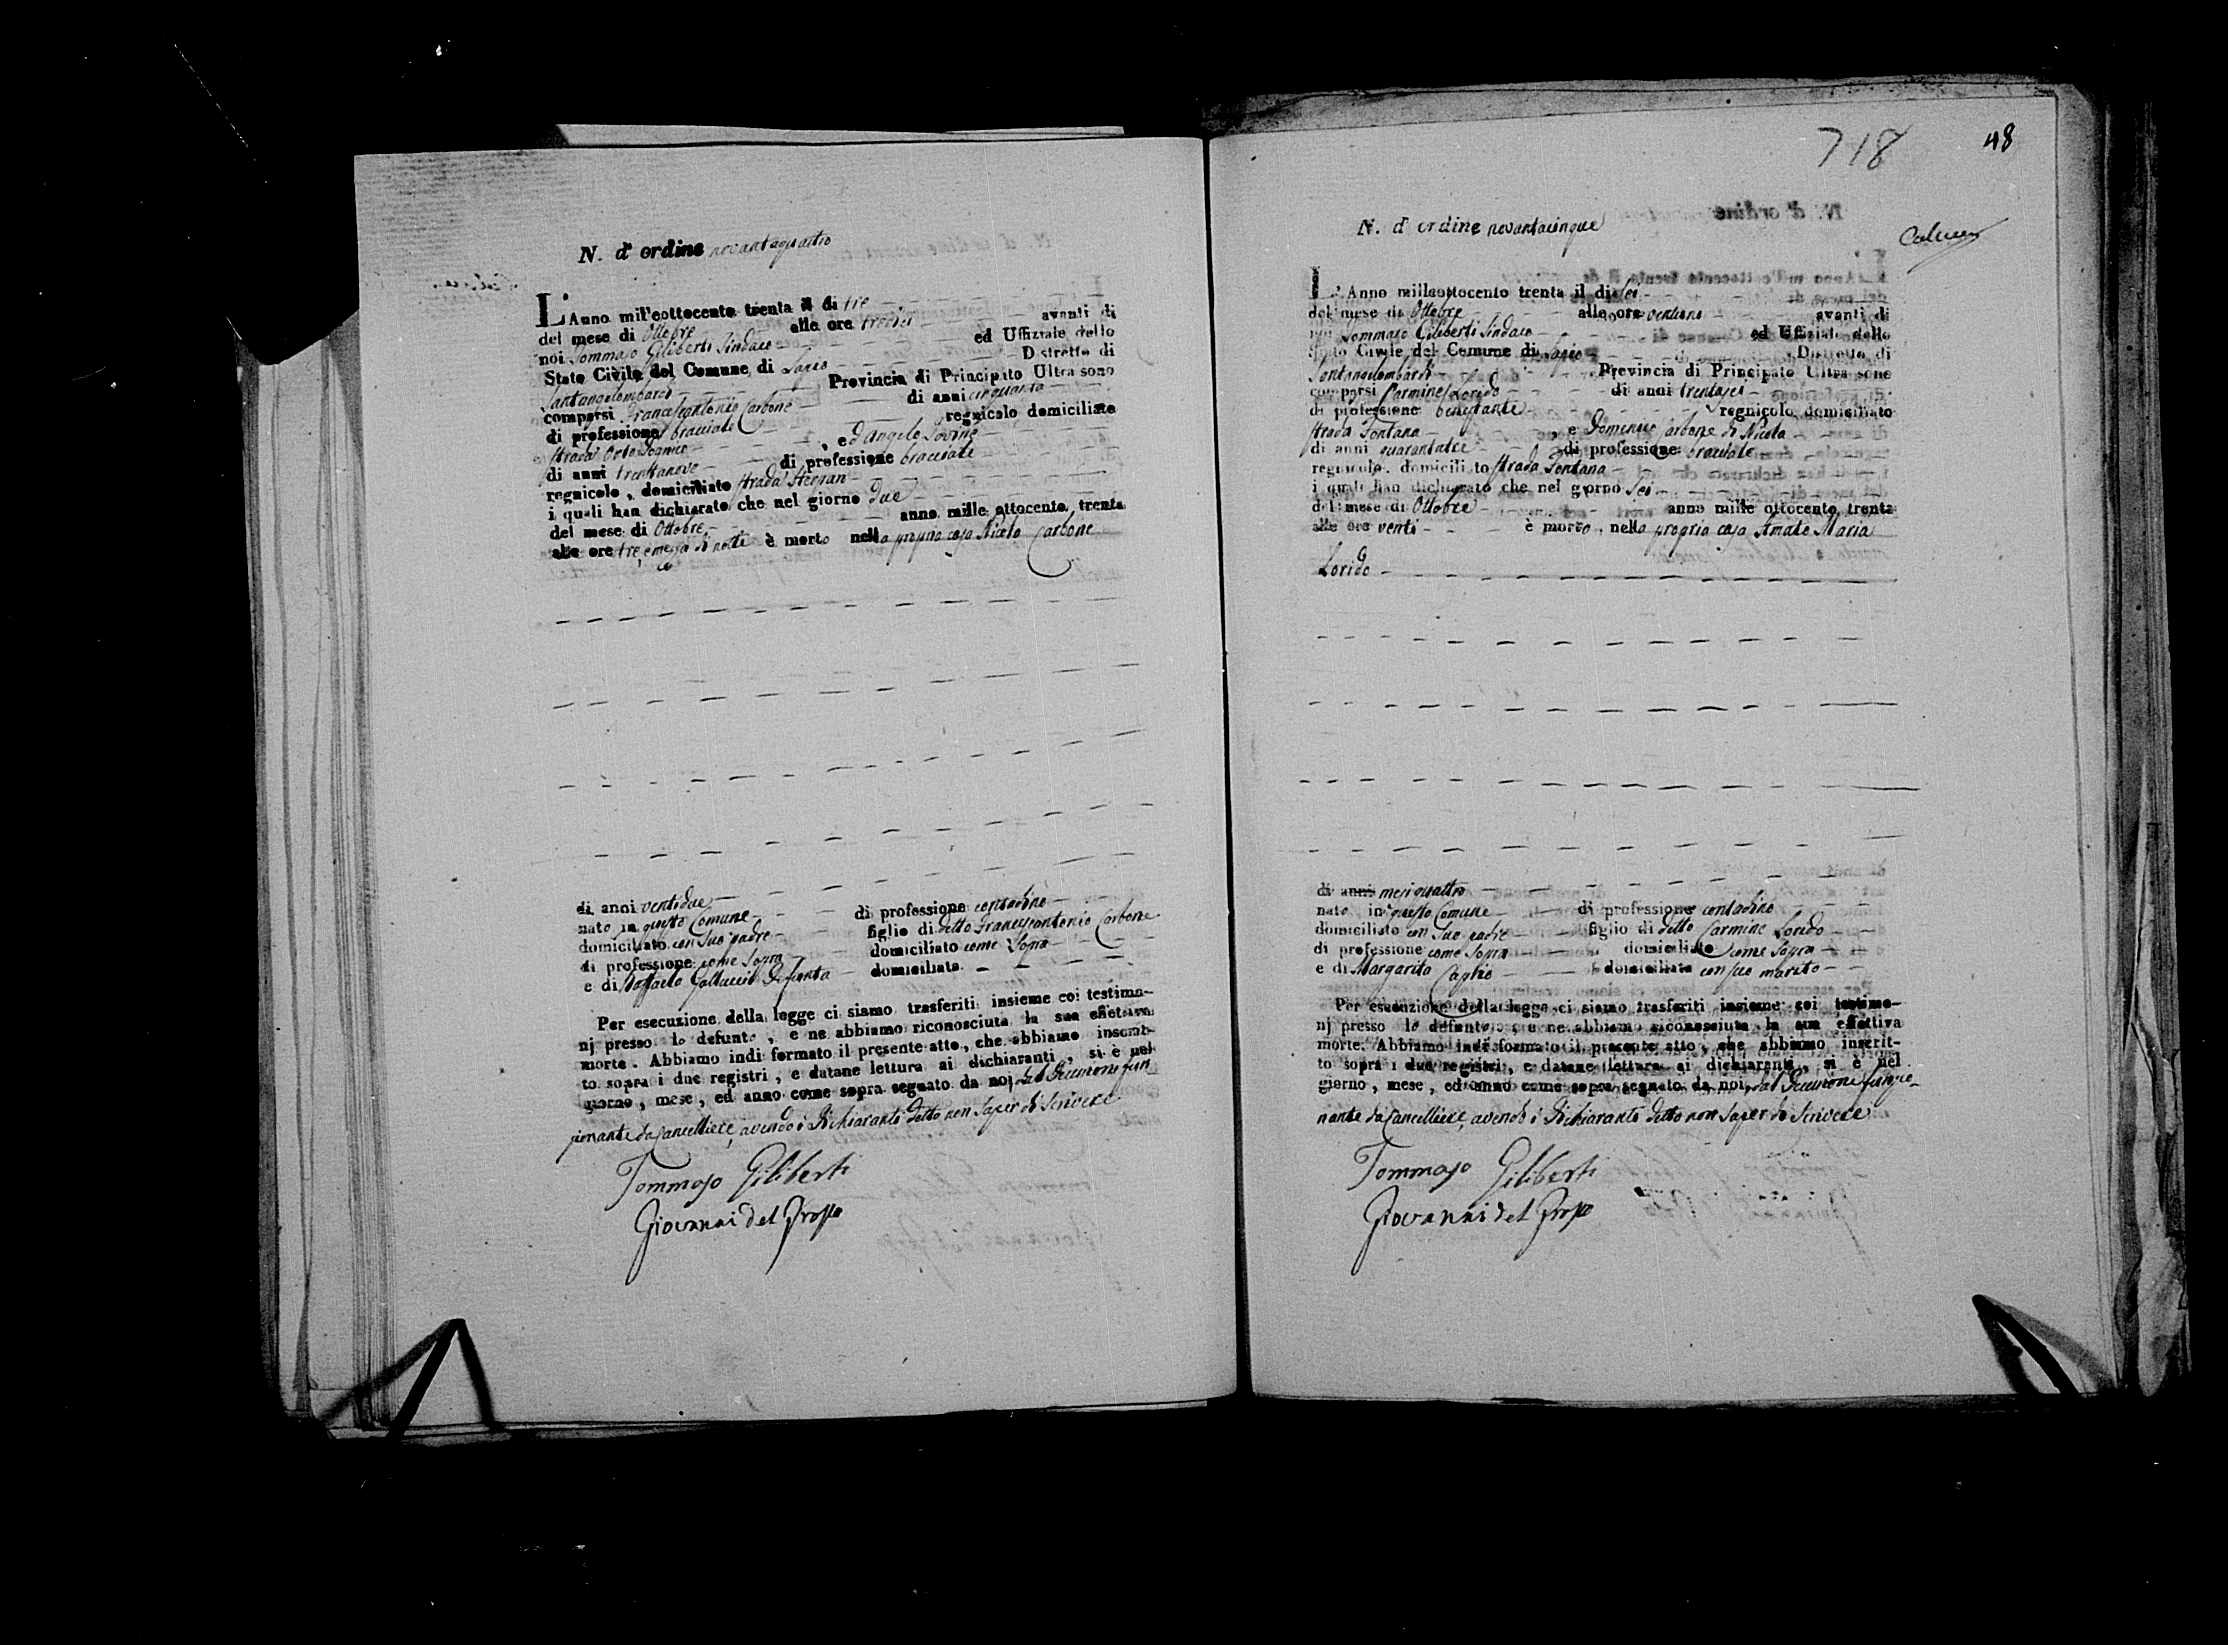 N. d' ordine novantaquattro
L'Anno mill'eottocento trenta il di tre
del mese di Ottobre alle ore tredici avanti di
noi Tommaso Giliberti Sindaco ed Uffiziale dello
Stato Civile del Comune di Lapio Distretto di
Santangelombardi Provincia di Principato Ultra sono
comparsi Francescantonio Carbone di anni cinquanta
di professione bracciale regnicolo domiciliato
strada , ed Angelo Iovine
di anni trentanove di professione bracciale
regnicolo , domiciliato strada
i quali han dichiarato che nel giorno due
del mese di Ottobre anno mille ottocento trenta
alle ore tre e mezza di notte è morto nella propria casa Nicola Carbone
di anni ventidue
nato in questo Comune di professione contadino
domiciliato con suo padre figlio di detto Francescantonio Carbone
di professione come sopra domiciliato come sopra
e di Raffaela Galluccio defunta domiciliata
Per esecuzione della legge ci siamo trasferiti insieme coi testimo-
nj presso lo defunto , e ne abbiamo riconosciuta la sua effettiva
morte . Abbiamo indi formato il presente atto , che abbiamo inscrit-
to sopra i due registri , e datane lettura ai dichiaranti , si è nel
giorno , mese , ed anno come sopra segnato da noi, dal Decurione fun
zionante da Cancelliere, avendo i dichiaranti detto non saper di scrivere
Tommaso Giliberti
Giovanni del Grosso
718
48
N. d' ordine novantacinque
L'Anno milleottocento trenta il di sei
del mese di Ottobre alle ore ventuno avanti di
noi Tommaso Giliberti Sindaco ed Uffiziale dello
Stato Civile del Comune di Lapio Distretto di
Santangelombardi Provincia di Principato Ultra sono
comparsi Carmine Lorido di anni trentasei
di professione regnicolo domiciliato
strada Fontana , e Domenico Carbone di Nicola
di anni quarantatre di professione bracciale
regnicolo , domiciliato strada Fontana
i quali han dichiarato che nel giorno sei
del mese di Ottobre anno mille ottocento trenta
alle ore venti è morto nella propria casa Amato Maria
Lorido
di anni mesi quattro
nato in questo Comune di professione contadino
domiciliato con suo padre figlio di detto Carmine Lorido
di professione come sopra domiciliato come sopra
e di Margarita Caglio domiciliata con suo marito
Per esecuzione della legge ci siamo trasferiti insieme coi testimo-
nj presso lo defunto , e ne abbiamo riconosciuta la sua effettiva
morte. Abbiamo indi formato il presente atto , che abbiamo inscrit-
to sopra i due registri , e datane lettura ai dichiaranti , si è nel
giorno , mese , ed anno come sopra segnato da noi, dal Decurione funzio-
nante da Cancelliere, avendo i dichiaranti detto non saper di scrivere
Tommaso Giliberti
Giovanni del Grosso